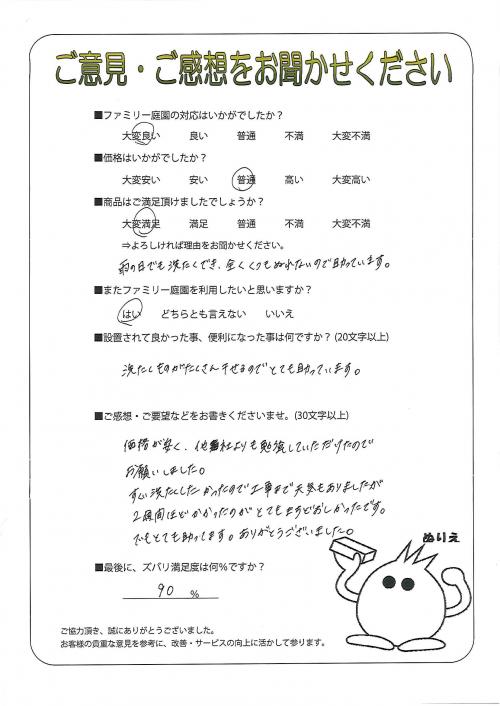 ご意見・ご感想をお聞かせください
■ファミリー庭園の対応はいかがでしたか？
大変良い 良い 普通 不満 大変不満
■価格はいかがでしたか？
大変安い 安い 普通 高い 大変高い
■商品はご満足頂けましたでしょうか？
大変満足 満足 普通 不満 大変不満
⇒よろしければ理由をお聞かせください。
雨の日でも洗たくでき、全くくつもぬれないので助っています。
■またファミリー庭園を利用したいと思いますか？
はい どちらとも言えない いいえ
■設置されて良かった事、便利になった事は何ですか？(20文字以上)
洗たくものがたくさん干せるのでとても助っています。
■ご感想・ご要望などをお書きくださいませ。(30文字以上)
価格が安く、他社よりも勉強していただけたので
お願いしました。
すぐ洗たくしたかったので工事まで天気もありましたが
2週間ほどかかったのがとてもまちどおしかったです。
でもとても助ってます。ありがとうございました。
ぬりえ
■最後に、ズバリ満足度は何％ですか？
90 ％
ご協力頂き、誠にありがとうございました。
お客様の貴重な意見を参考に、改善・サービスの向上に活かして参ります。